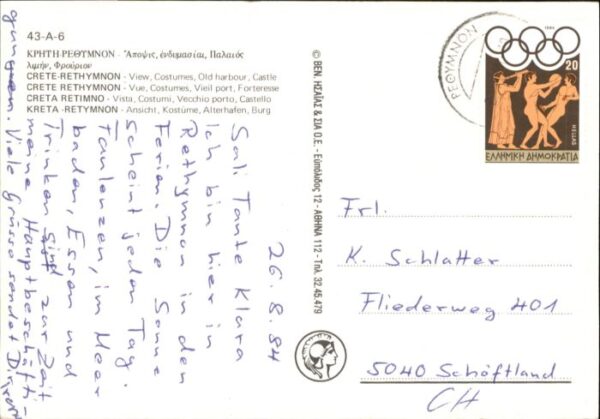 43-A-6
ΚΡΗΤΗ-ΡΕΘΥΜΝΟΝ - Ἄποψις, ἐνδυμασίαι, Παλαιός
λιμήν, Φρούριον
CRETE-RETHYMNON - View, Costumes, Old harbour, Castle
CRETE RETHYMNON - Vue, Costumes, Vieil port, Forteresse
CRETA RETIMNO - Vista, Costumi, Vecchio porto, Castello
KRETA -RETYMNON - Ansicht, Kostüme, Alterhafen, Burg
26.8.84
Sali Tante Klara
Ich bin hier in
Rethymnon in den
Ferien. Die Sonne
scheint jeden Tag.
Faulenzen, im Meer
baden, Essen und
Trinken sind zur Zeit
meine Hauptbeschäfti-
gungen. Viele Grüsse sendet Dir
© ΒΕΝ. ΗΣΑΪΑΣ & ΣΙΑ Ο.Ε. - Εὐπυλίδος 12 - ΑΘΗΝΑ 112 - Τηλ. 32.45.479
ΡΕΘΥΜΝΟΝ
1984
20
HELLAS
ΕΛΛΗΝΙΚΗ ΔΗΜΟΚΡΑΤΙΑ
Frl.
K. Schlatter
Fliederweg 401
5040 Schöftland
CH